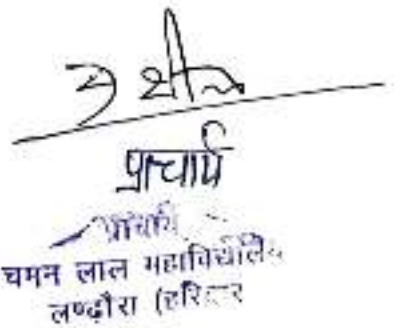 सुशील
प्राचार्य
प्राचार्य
चमन लाल महाविद्यालय
लण्ढौरा (हरिद्वार